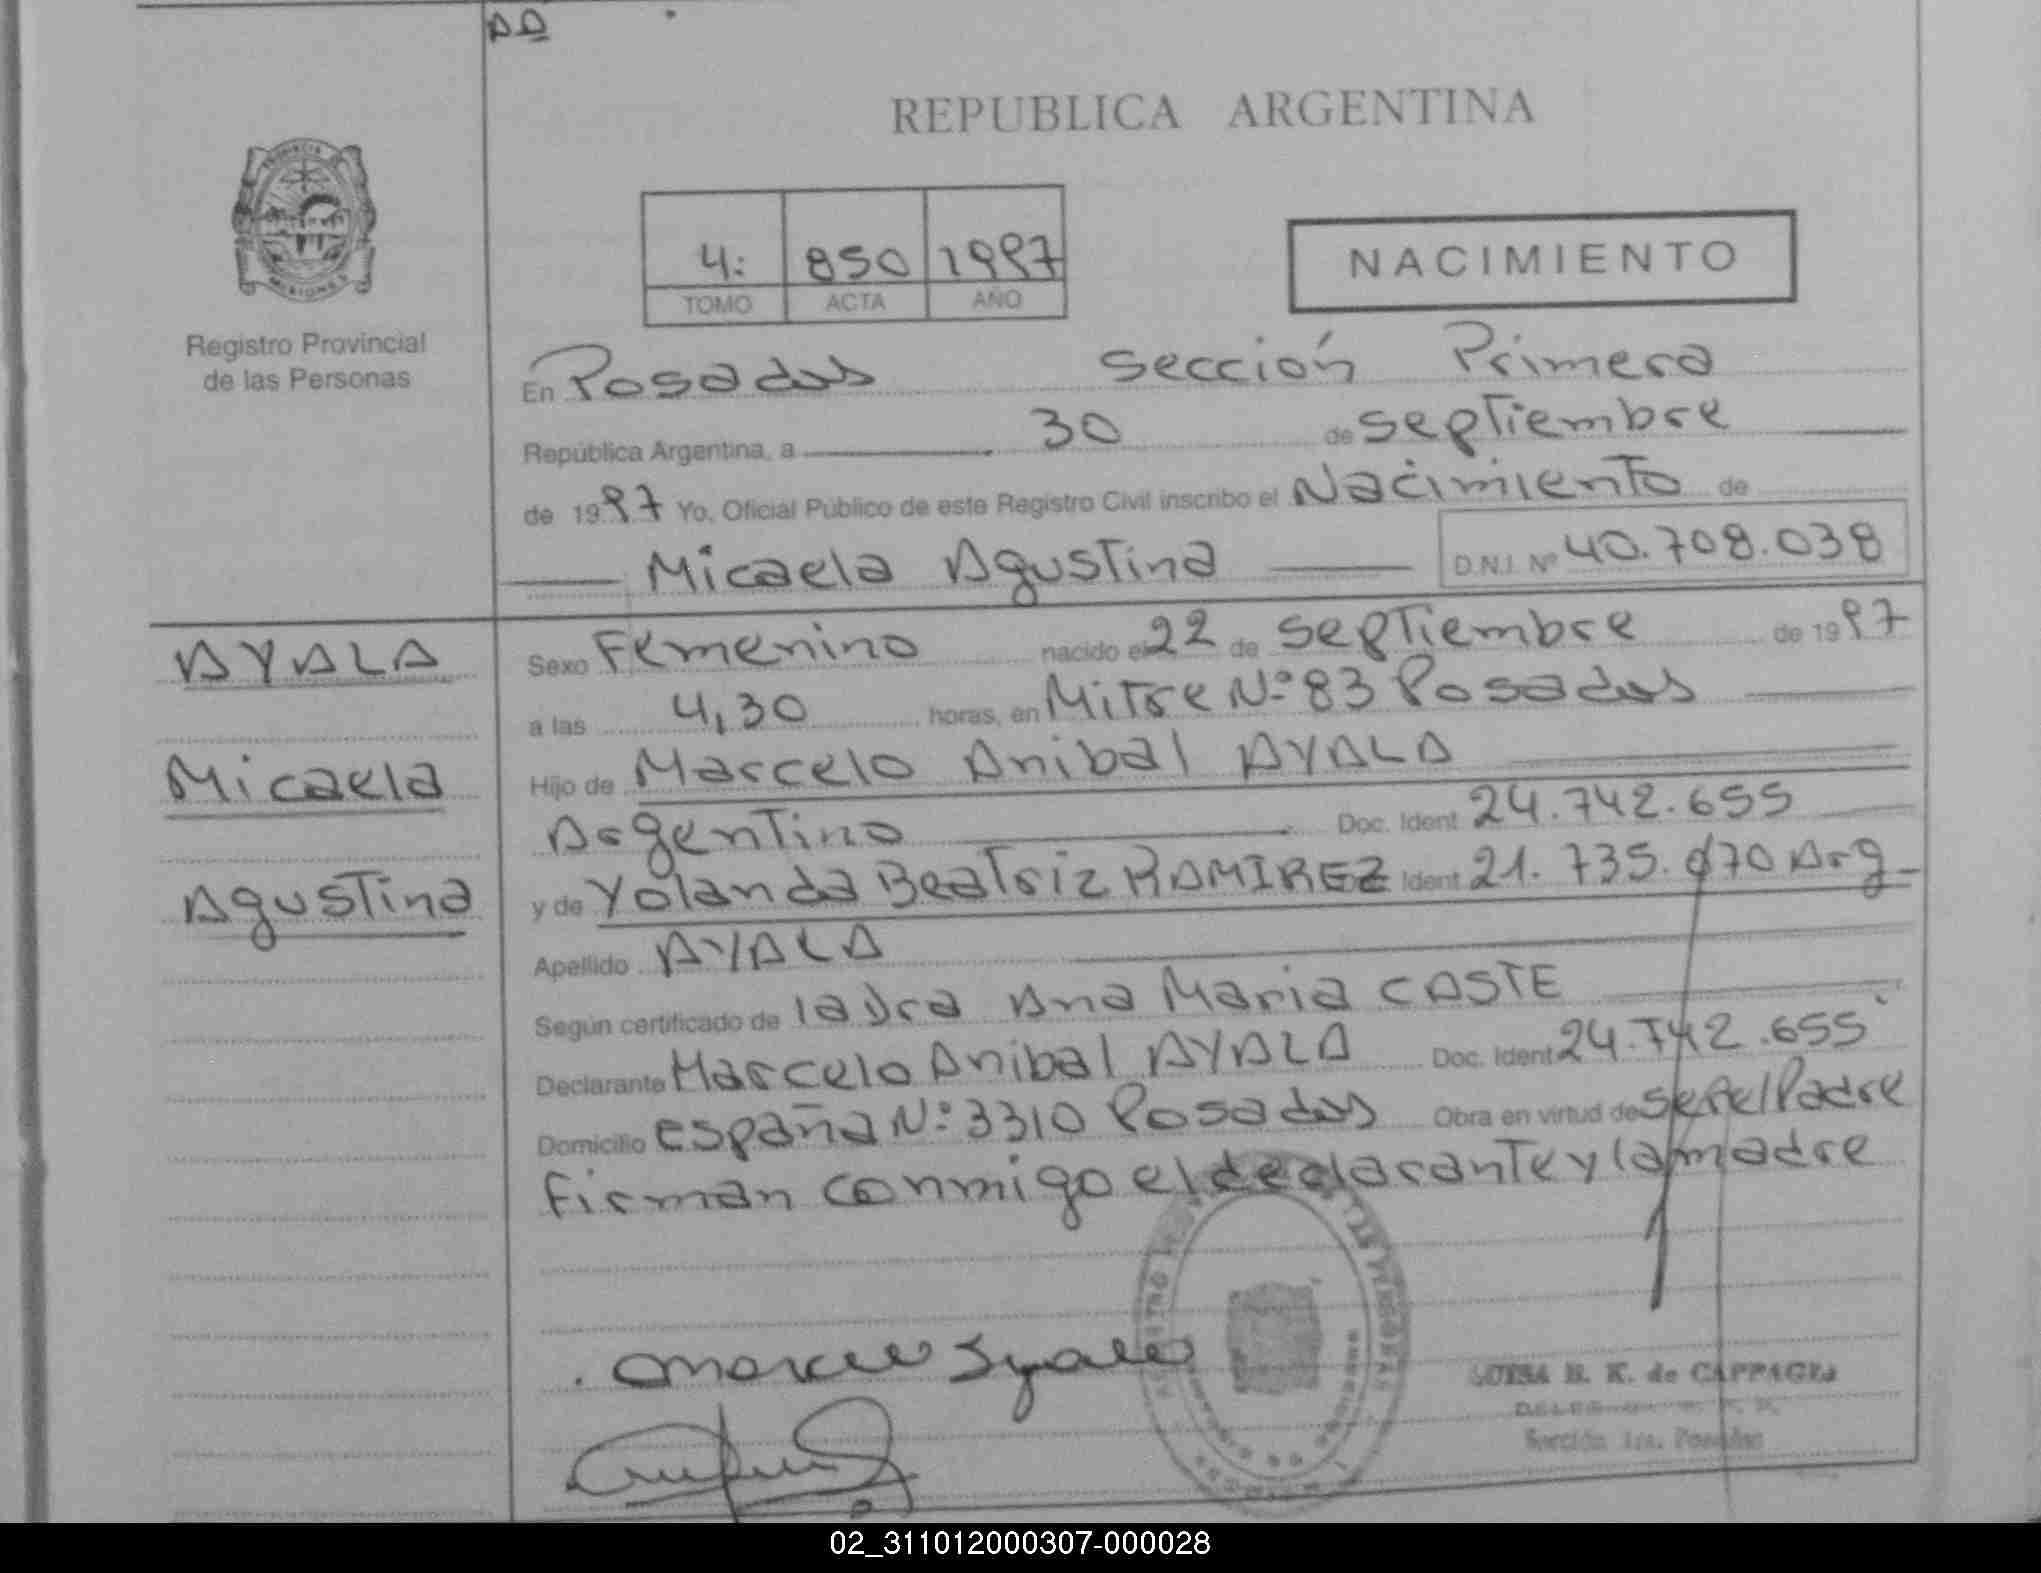 AA
REPUBLICA ARGENTINA
PROVINCIA DE
MISIONES
Registro Provincial
de las Personas
4: 850 1997
TOMO ACTA AÑO
NACIMIENTO
En Posadas Sección Primera
República Argentina, a 30 de septiembre
de 1997 Yo, Oficial Público de este Registro Civil inscribo el Nacimiento de
Micaela Agustina D.N.I. Nº 40.708.038
AYALA
Micaela
Agustina
Sexo Femenino nacido el 22 de septiembre de 1997
a las 4,30 horas, en Mitre Nº 83 Posadas
Hijo de Marcelo Anibal AYALA
Argentino Doc. Ident 24.742.655
y de Yolanda Beatriz RAMIREZ Ident 21.735.070 Arg
Apellido AYALA
Según certificado de la Dra Ana Maria CASTE
Declarante Marcelo Anibal AYALA Doc. Ident 24.742.655
Domicilio españa Nº 3310 Posadas Obra en virtud de ser el Padre
Firman conmigo el declarante y la madre
LUISA B. K. de
Sección 1ra. Posadas
02_311012000307-000028